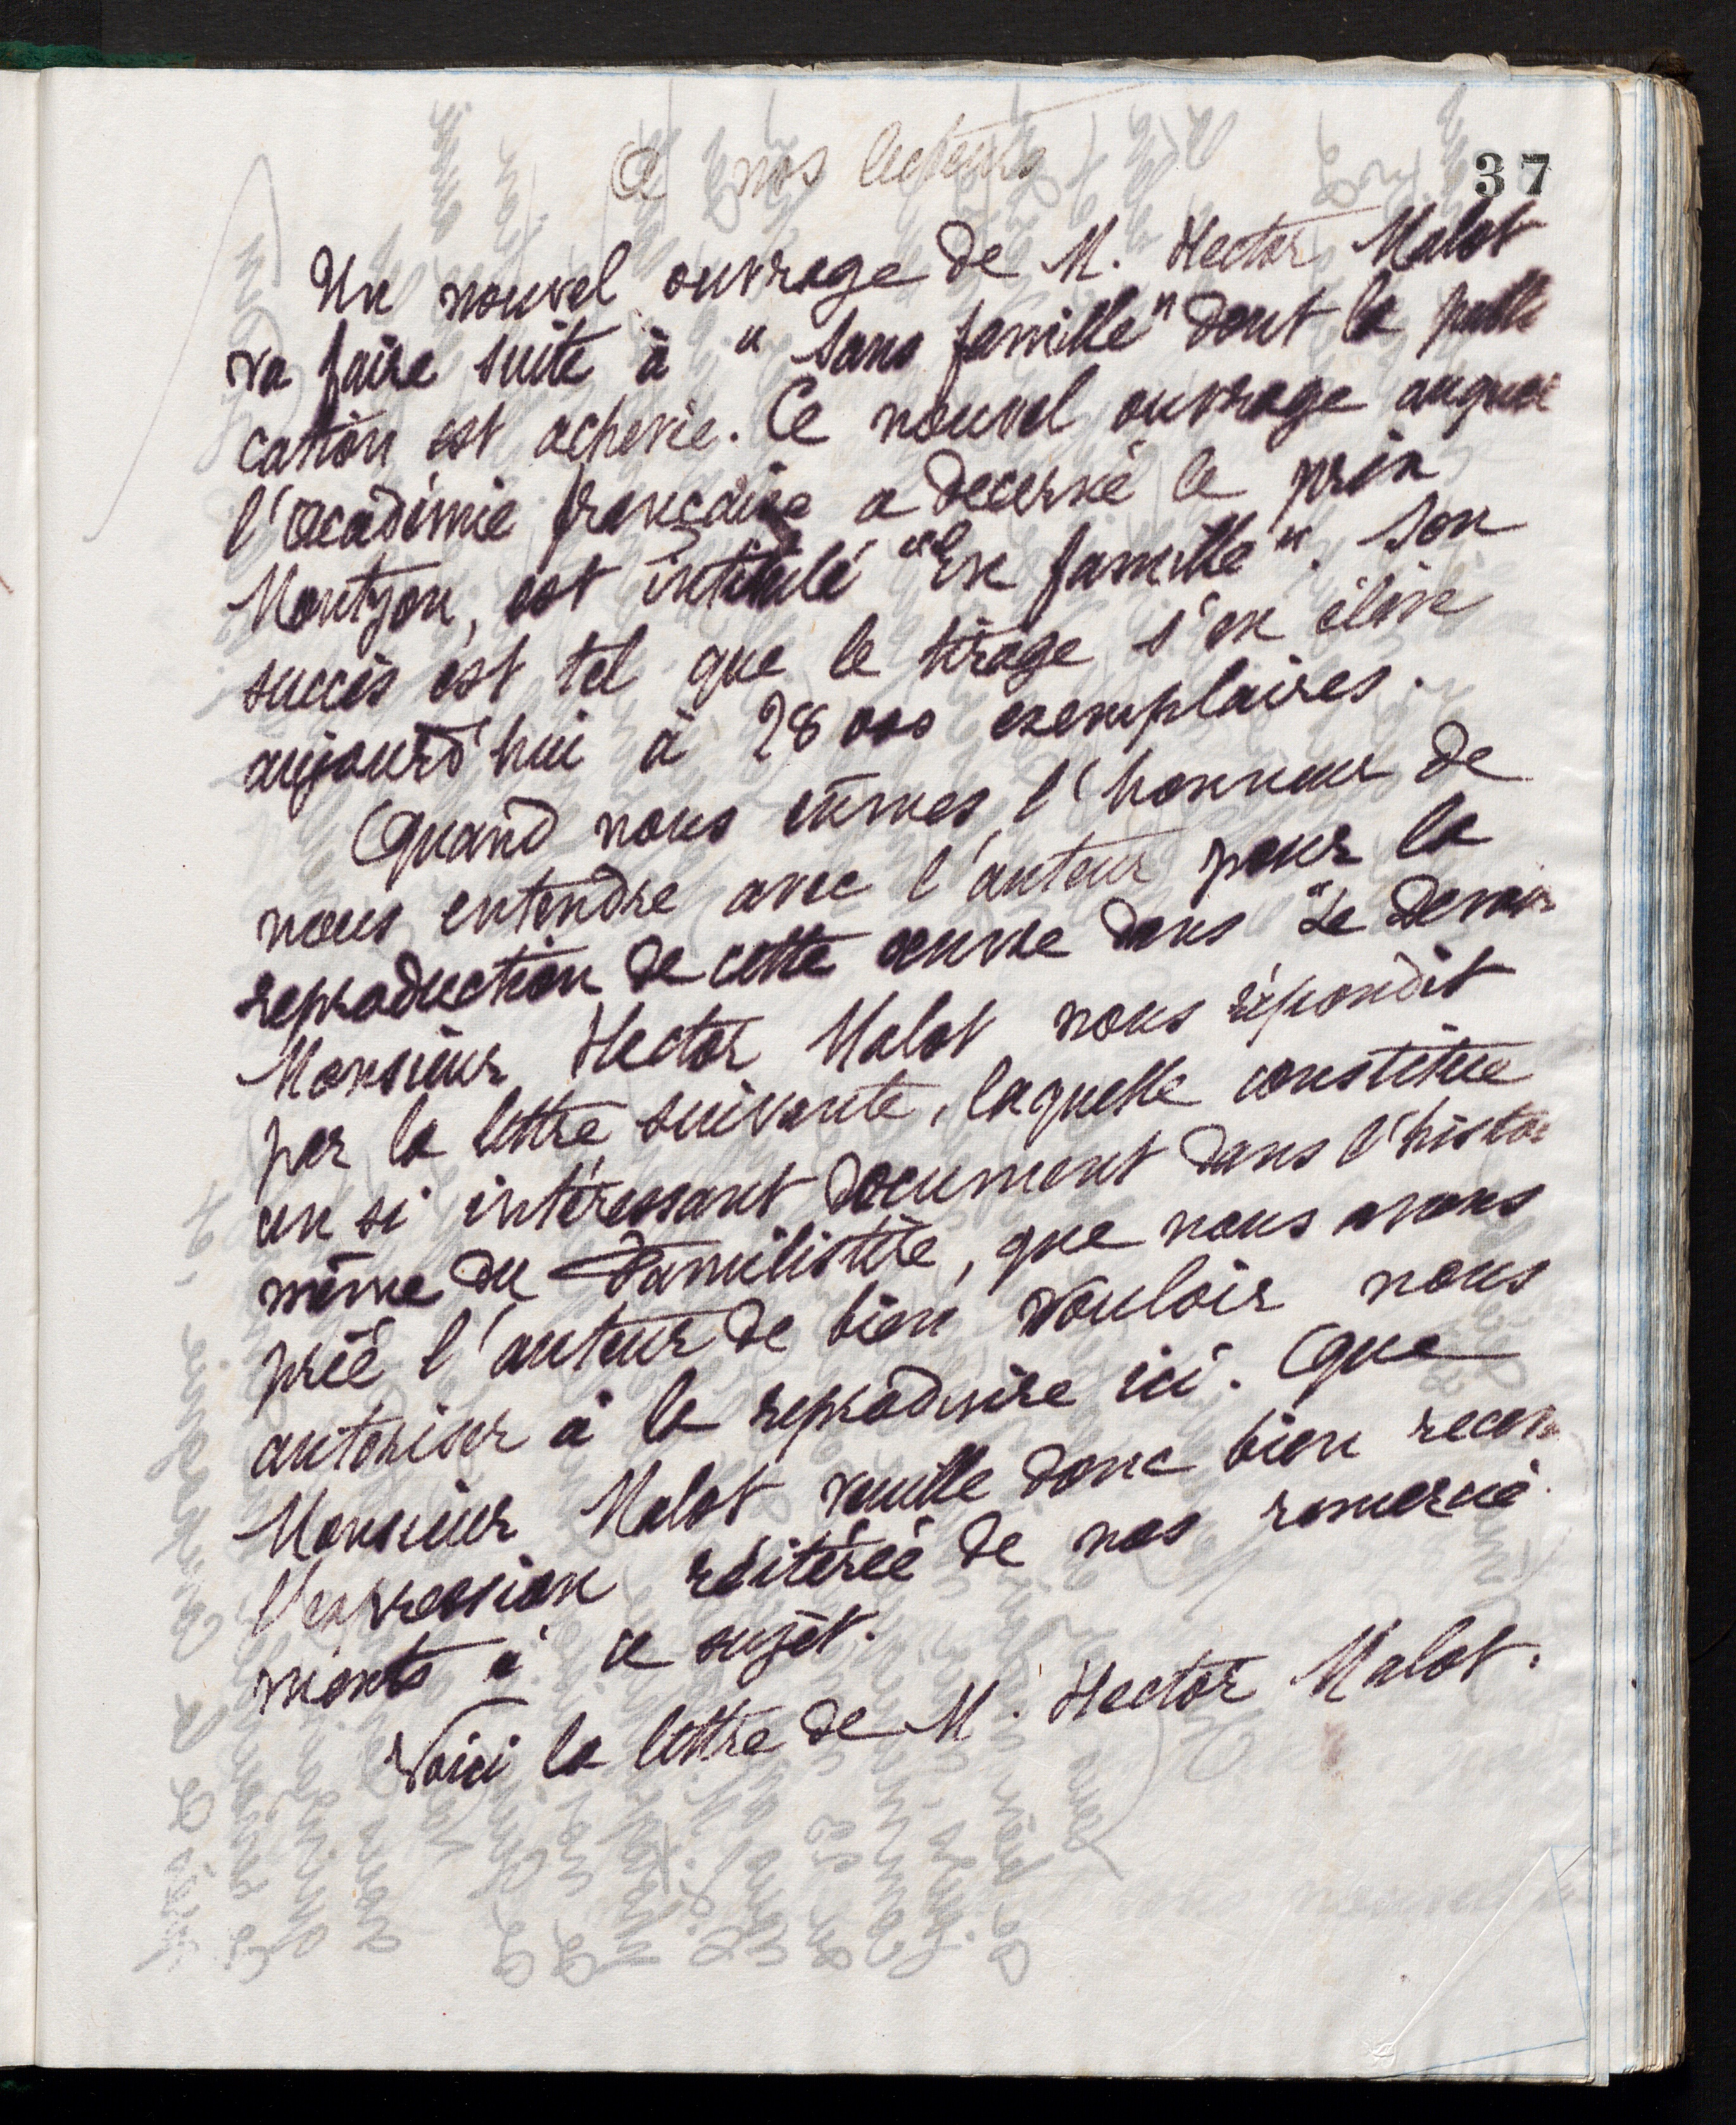 A nos lecteurs
37
Un nouvel ouvrage de M. Hector Malot
va faire suite à "Sans famille" dont la publi
cation est achevée. Ce nouvel ouvrage auquel
l'Académie française a decerné le prix
Montyon, est intitulé "En famille". Son
succès est tel que le tirage s'en élève
aujourd'hui à 28 000 exemplaires.
Quand nous eûmes l'honneur de
nous entendre avec l'auteur pour la
reproduction de cette œuvre dans "Le Devoir
Monsieur Hector Malot nous répondit
par la lettre suivante, laquelle constitue
un si intéressant document dans l'histoire
même du Familistère, que nous avons
prié l'auteur de bien vouloir nous
autoriser à la reproduire ici. Que
Monsieur Malot veuille donc bien recevoir
l'expression réitérée de nos remercie
ments à ce sujet.
Voici la lettre de M. Hector Malot.